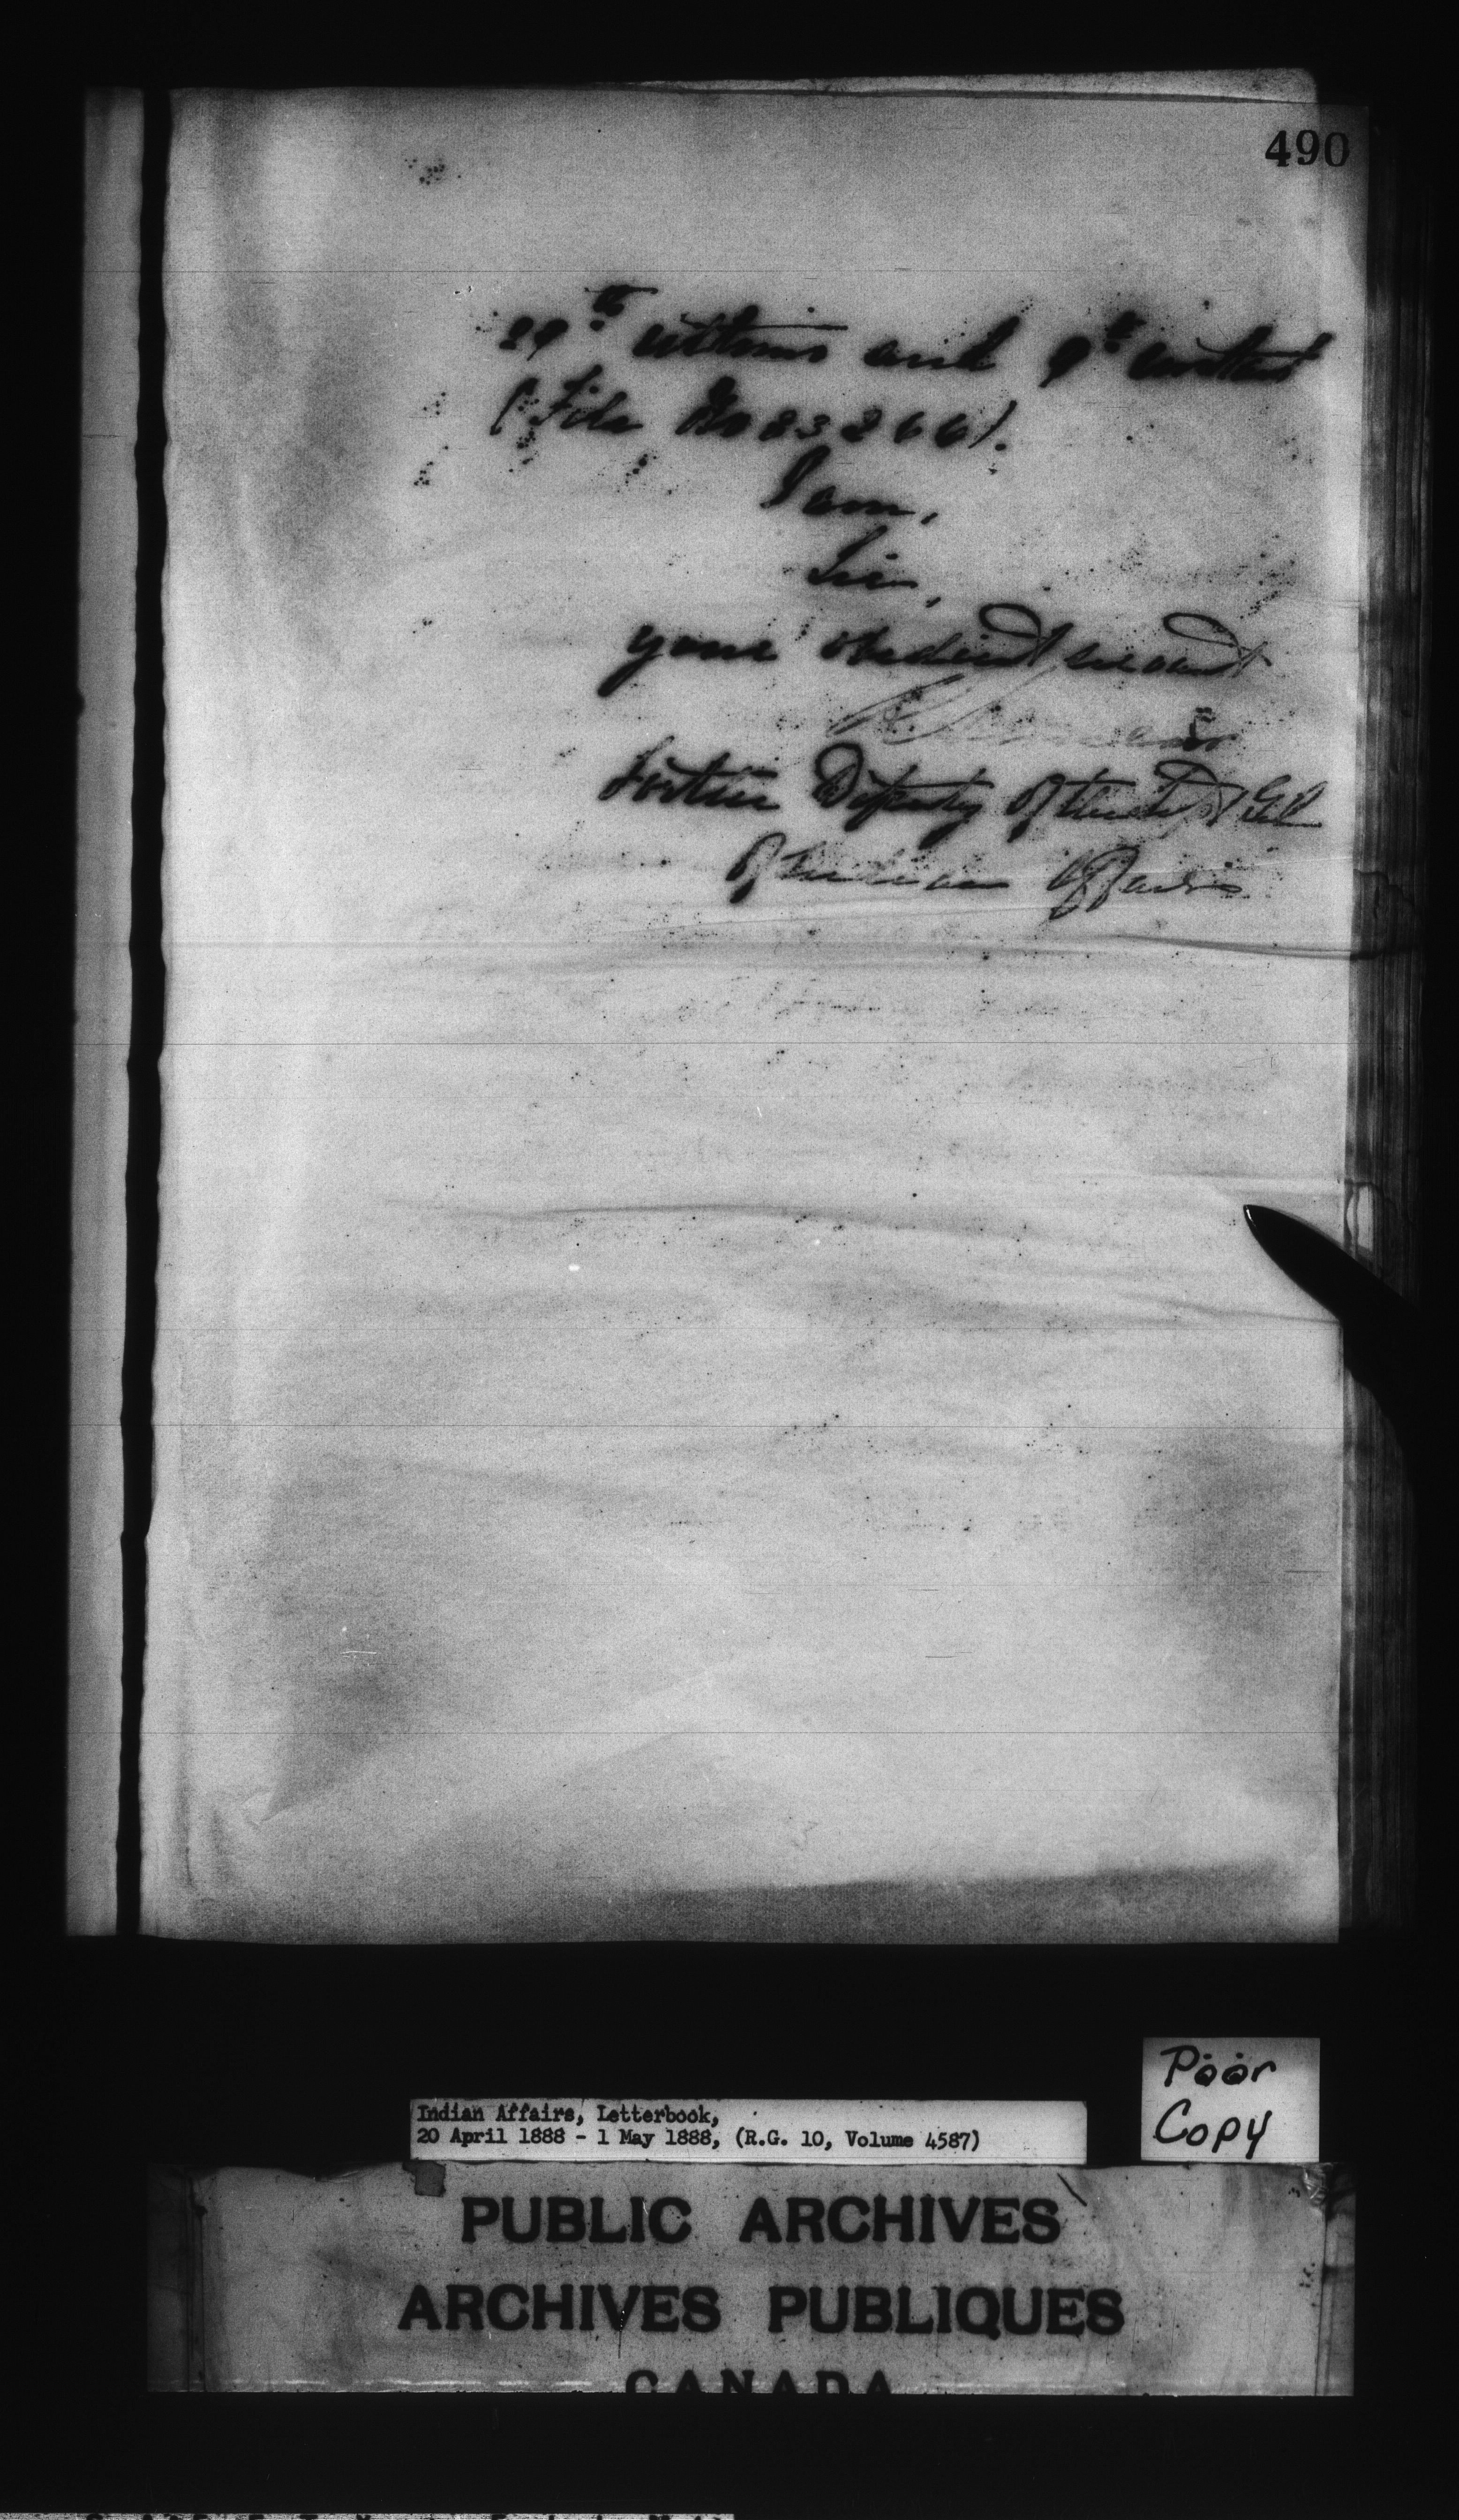 490
29th ultimo and 9th instant
(File No 83266).
I am,
Sir,
your obedient servant
for the Deputy of the Supt Genl
of Indian Affairs
Poor
Copy
Indian Affairs, Letterbook,
20 April 1888 - 1 May 1888, (R.G. 10, Volume 4587)
PUBLIC ARCHIVES
ARCHIVES PUBLIQUES
CANADA